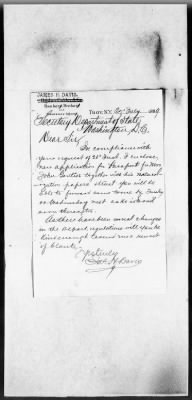 JAMES H. DAVIS,
Troy, N.Y. 30" July 1889
Secretary Department of State
Washington D.C.
Dear Sir,
In compliance with
your request of 28" inst. I enclose
new application for Passport for Mr
John together with his natural-
ization papers. Trust you will be
able to forward same home by Tuesday
or Wednesday next
thereafter.
As there have been several changes
in the Dep't regulations will you be
kind enough to send me new set
of blanks.
Yrs truly
Jas. H. Davis